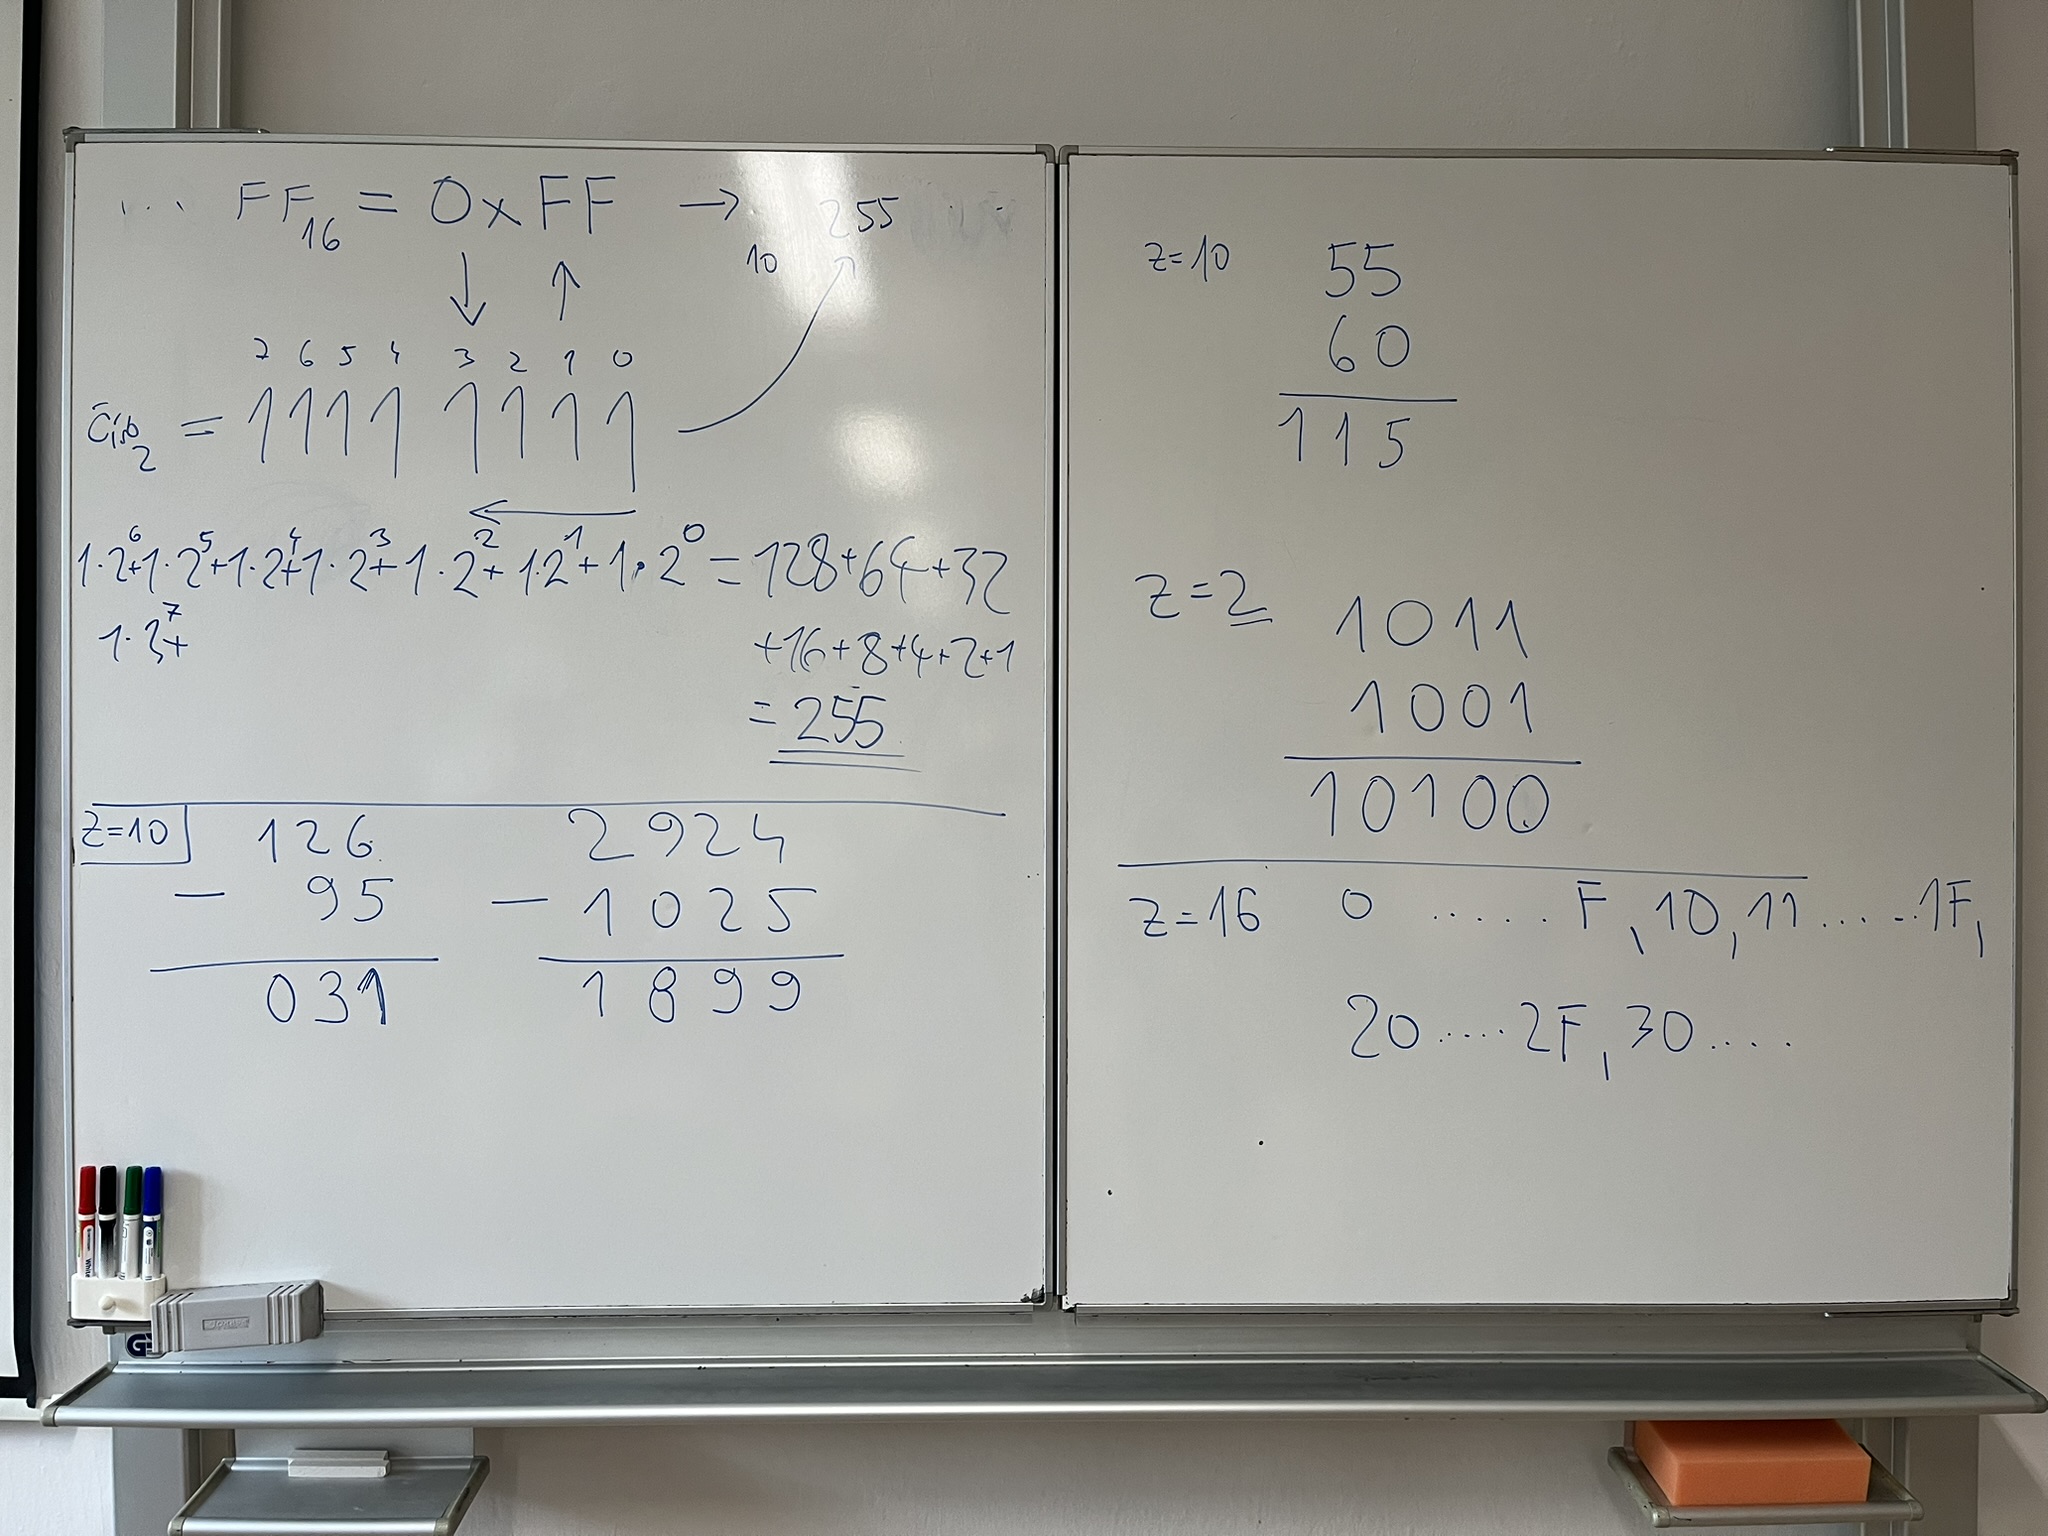 ... FF₁₆ = 0xFF → ₁₀ 255
↓ ↑
7 6 5 4 3 2 1 0
Číslo₂ = 1111 1111
←
1·2⁶+1·2⁵+1·2⁴+1·2³+1·2²+1·2¹+1·2⁰ = 128+64+32
1·3⁷+
+16+8+4+2+1
= 255
z=10
126
- 95
031
2924
- 1025
1899
z=10 55
60
115
z=2 1011
1001
10100
z=16 0 ..... F, 10, 11 ..... 1F,
20 .... 2F, 30 ....